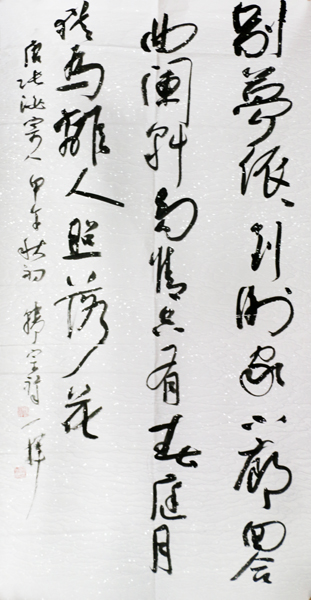 別夢依〻到謝家小廊回合
曲闌斜多情只有春庭月
猶為離人照落花
唐張泌寄人甲午秋初